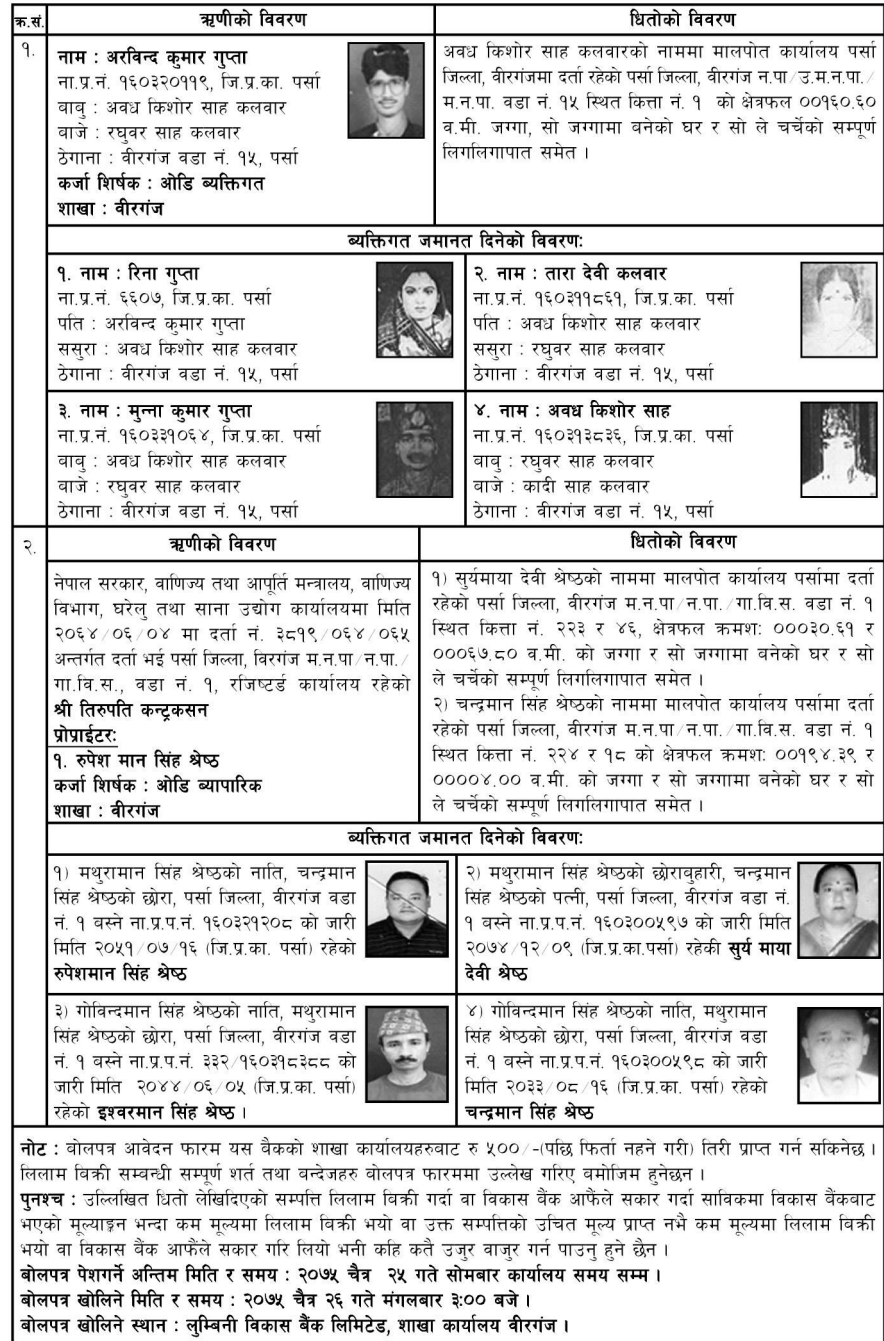 क्र.सं.
ऋणीको विवरण
धितोको विवरण
१.
नाम : अरविन्द कुमार गुप्ता
ना.प्र.नं. १६०३२०११९, जि.प्र.का. पर्सा
बाबु : अवध किशोर साह कलवार
बाजे : रघुवर साह कलवार
ठेगाना : वीरगंज वडा नं. १५, पर्सा
कर्जा शिर्षक : ओडि ब्यक्तिगत
शाखा : वीरगंज
अवध किशोर साह कलवारको नाममा मालपोत कार्यालय पर्सा
जिल्ला, वीरगंजमा दर्ता रहेको पर्सा जिल्ला, वीरगंज न.पा/उ.म.न.पा./
म.न.पा. वडा नं. १५ स्थित कित्ता नं. १ को क्षेत्रफल ००१६०.६०
व.मी. जग्गा, सो जग्गामा बनेको घर र सो ले चर्चेको सम्पूर्ण
लिगलिगापात समेत ।
ब्यक्तिगत जमानत दिनेको विवरण:
१. नाम : रिना गुप्ता
ना.प्र.नं. ६६०७, जि.प्र.का. पर्सा
पति : अरविन्द कुमार गुप्ता
ससुरा : अवध किशोर साह कलवार
ठेगाना : वीरगंज वडा नं. १५, पर्सा
२. नाम : तारा देवी कलवार
ना.प्र.नं. १६०३११८६१, जि.प्र.का. पर्सा
पति : अवध किशोर साह कलवार
ससुरा : रघुवर साह कलवार
ठेगाना : वीरगंज वडा नं. १५, पर्सा
३. नाम : मुन्ना कुमार गुप्ता
ना.प्र.नं. १६०३३१०६४, जि.प्र.का. पर्सा
बाबु : अवध किशोर साह कलवार
बाजे : रघुवर साह कलवार
ठेगाना : वीरगंज वडा नं. १५, पर्सा
४. नाम : अवध किशोर साह
ना.प्र.नं. १६०३१३८३६, जि.प्र.का. पर्सा
बाबु : रघुवर साह कलवार
बाजे : कादी साह कलवार
ठेगाना : वीरगंज वडा नं. १५, पर्सा
२.
ऋणीको विवरण
धितोको विवरण
नेपाल सरकार, वाणिज्य तथा आपूर्ति मन्त्रालय, वाणिज्य
विभाग, घरेलु तथा साना उद्योग कार्यालयमा मिति
२०६४/०६/०४ मा दर्ता नं. ३८१९/०६४/०६५
अन्तर्गत दर्ता भई पर्सा जिल्ला, विरगंज म.न.पा/न.पा./
गा.वि.स., वडा नं. १, रजिष्टर्ड कार्यालय रहेको
श्री तिरुपति कन्ट्रकसन
प्रोप्राईटर:
१. रुपेश मान सिंह श्रेष्ठ
कर्जा शिर्षक : ओडि ब्यापारिक
शाखा : वीरगंज
१) सुर्यमाया देवी श्रेष्ठको नाममा मालपोत कार्यालय पर्सामा दर्ता
रहेको पर्सा जिल्ला, वीरगंज म.न.पा/न.पा./गा.वि.स. वडा नं. १
स्थित कित्ता नं. २२३ र ४६, क्षेत्रफल क्रमश: ०००३०.६१ र
०००६७.८० व.मी. को जग्गा र सो जग्गामा बनेको घर र सो
ले चर्चेको सम्पूर्ण लिगलिगापात समेत ।
२) चन्द्रमान सिंह श्रेष्ठको नाममा मालपोत कार्यालय पर्सामा दर्ता
रहेको पर्सा जिल्ला, वीरगंज म.न.पा/न.पा./गा.वि.स. वडा नं. १
स्थित कित्ता नं. २२४ र १८ को क्षेत्रफल क्रमश: ००१९४.३९ र
००००४.०० व.मी. को जग्गा र सो जग्गामा बनेको घर र सो
ले चर्चेको सम्पूर्ण लिगलिगापात समेत ।
ब्यक्तिगत जमानत दिनेको विवरण:
१) मथुरामान सिंह श्रेष्ठको नाति, चन्द्रमान
सिंह श्रेष्ठको छोरा, पर्सा जिल्ला, वीरगंज वडा
नं. १ बस्ने ना.प्र.प.नं. १६०३२१२०८ को जारी
मिति २०५१/०७/१६ (जि.प्र.का. पर्सा) रहेको
रुपेशमान सिंह श्रेष्ठ
२) मथुरामान सिंह श्रेष्ठको छोराबुहारी, चन्द्रमान
सिंह श्रेष्ठको पत्नी, पर्सा जिल्ला, वीरगंज वडा नं.
१ बस्ने ना.प्र.प.नं. १६०३००५९७ को जारी मिति
२०७४/१२/०९ (जि.प्र.का.पर्सा) रहेकी सुर्य माया
देवी श्रेष्ठ
३) गोविन्दमान सिंह श्रेष्ठको नाति, मथुरामान
सिंह श्रेष्ठको छोरा, पर्सा जिल्ला, वीरगंज वडा
नं. १ बस्ने ना.प्र.प.नं. ३३२/१६०३१८३८८ को
जारी मिति २०४४/०६/०५ (जि.प्र.का. पर्सा)
रहेको इश्वरमान सिंह श्रेष्ठ ।
४) गोविन्दमान सिंह श्रेष्ठको नाति, मथुरामान
सिंह श्रेष्ठको छोरा, पर्सा जिल्ला, वीरगंज वडा
नं. १ बस्ने ना.प्र.प.नं. १६०३००५९८ को जारी
मिति २०३३/०८/१६ (जि.प्र.का. पर्सा) रहेको
चन्द्रमान सिंह श्रेष्ठ
नोट : बोलपत्र आवेदन फारम यस बैकको शाखा कार्यालयहरुबाट रु ५००/-(पछि फिर्ता नहने गरी) तिरी प्राप्त गर्न सकिनेछ ।
लिलाम विक्री सम्बन्धी सम्पूर्ण शर्त तथा बन्देजहरु बोलपत्र फारममा उल्लेख गरिए बमोजिम हुनेछन ।
पुनश्च : उल्लिखित धितो लेखिदिएको सम्पत्ति लिलाम विक्री गर्दा वा विकास बैंक आफैंले सकार गर्दा साविकमा विकास बैंकबाट
भएको मूल्याङ्कन भन्दा कम मूल्यमा लिलाम विक्री भयो वा उक्त सम्पत्तिको उचित मूल्य प्राप्त नभै कम मूल्यमा लिलाम विक्री
भयो वा विकास बैंक आफैंले सकार गरि लियो भनी कहि कतै उजुर वाजुर गर्न पाउनु हुने छैन ।
बोलपत्र पेशगर्ने अन्तिम मिति र समय : २०७५ चैत्र २५ गते सोमबार कार्यालय समय सम्म ।
बोलपत्र खोलिने मिति र समय : २०७५ चैत्र २६ गते मंगलबार ३:०० बजे ।
बोलपत्र खोलिने स्थान : लुम्बिनी विकास बैंक लिमिटेड, शाखा कार्यालय वीरगंज ।